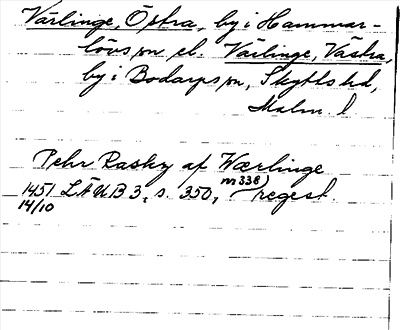 Värlinge, Östra, by i Hammar-
lövs sn el. Värlinge, Västra,
by i Bodarps sn, Skytts hd,
Malm. l
Pehr Rasky af Wærlinge
1451 LÄUB 3, s. 350, nr 338, regest
14/10